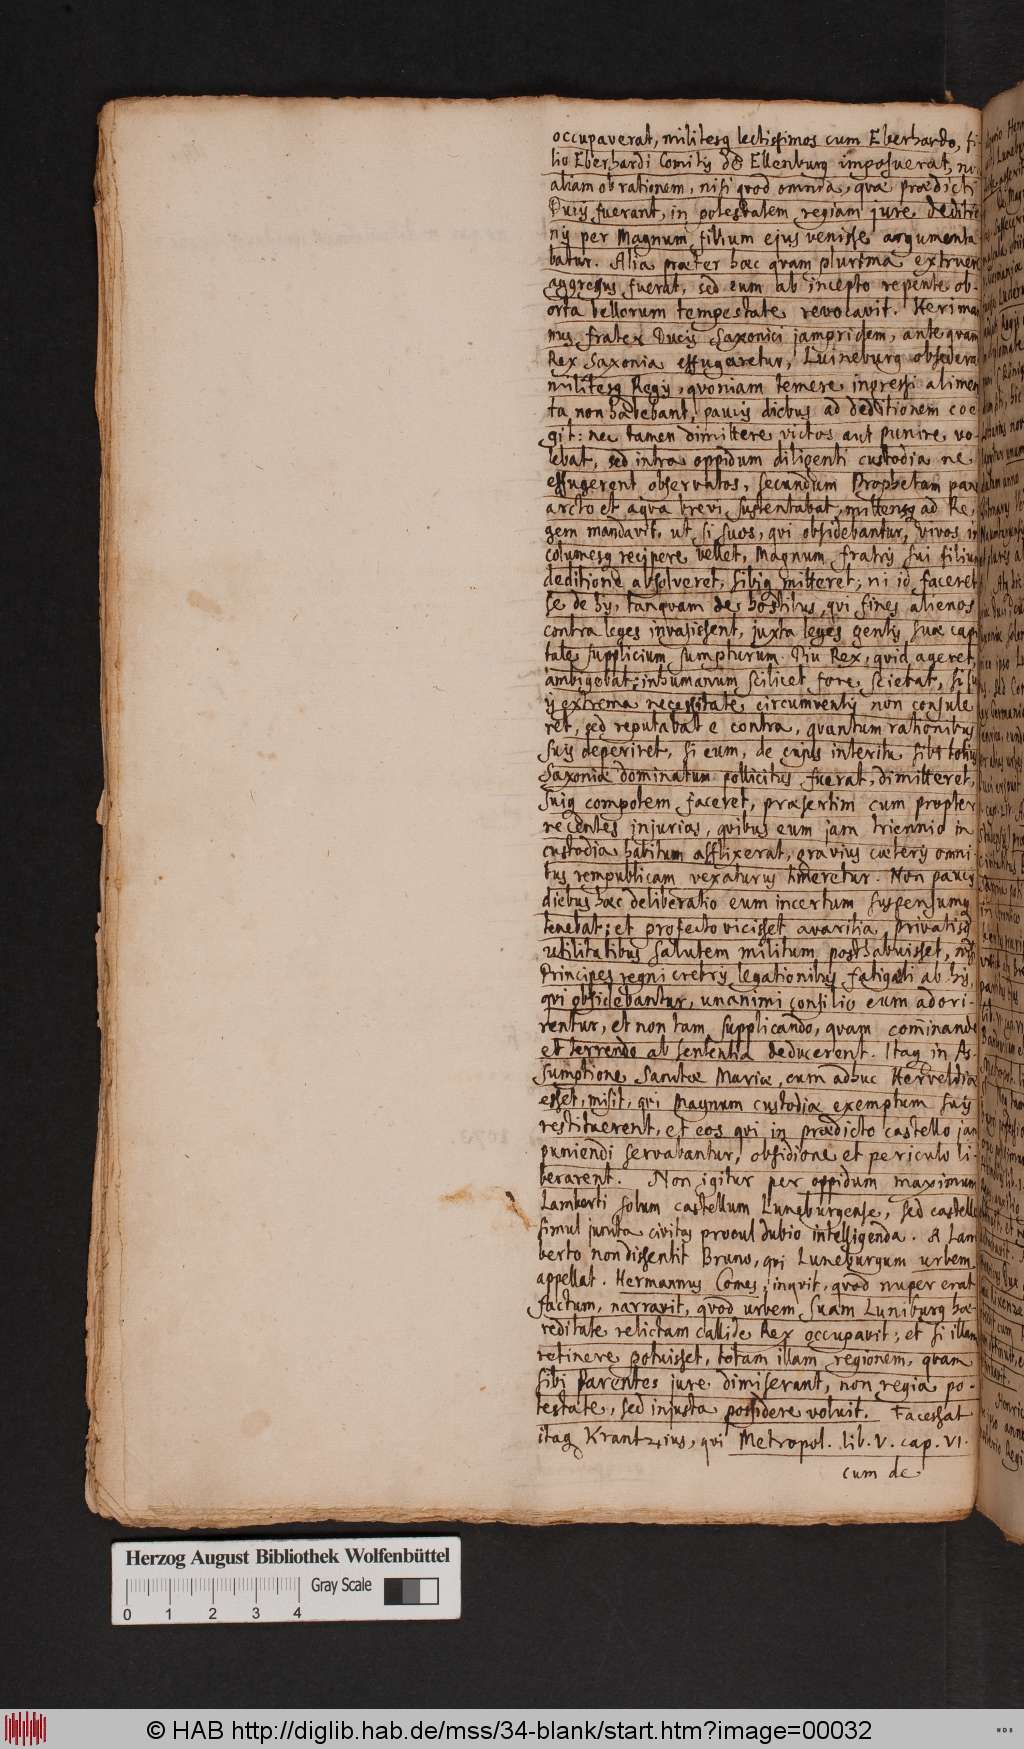 occupaverat, militesq lectissimos cum Eberhardo, fi-
lio Eberhardi Comitis de Ellenburg imposuerat, non
aliam ob rationem, nisi quod omnia, quæ prædicti
Ducis fuerant, in potestatem regiam jure deditio
nis per Magnum, filium ejus venisse argumenta-
batur. Alia præter hæc quam plurima extruere
aggressus fuerat, sed eum ab incepto repente ob-
orta bellorum tempestate revocavit. Herima
nus, frater Ducis Saxonici jampridem, ante quam
Rex Saxonia effugaretur, Luineburg obsedera
militesq Regis, quoniam temere inpressi alimen
ta non habebant, paucis diebus ad deditionem coe
git: nec tamen dimittere victos aut punire vo-
lebat, sed intra oppidum diligenti custodia ne
effugerent observatos, secundum Prophetam pane
arcto et aqva brevi sustentabat, mittensq ad Re-
gem mandavit, ut si suos, qui obsidebantur, vivos in
columesq recipere vellet, Magnum fratris sui filium
deditione absolveret, sibiq mitteret; ni id faceret
se de his, tanquam de hostibus, qui fines alienos
contra leges invasissent, juxta leges gentis suæ capi
tale supplicium sumpturum. Diu Rex, quid ageret,
ambigebat; inhumanum scilicet fore sciebat, si su
is extrema necessitate circumventis non consule
ret, sed reputabat e contra, quantum rationibus
suis deperiret, si eum, de cujus interitu sibi totius
Saxoniæ dominatum pollicitus fuerat, dimitteret,
suiq compotem faceret, præsertim cum propter
recentes injurias, quibus eum jam triennio in
custodia habitum afflixerat, gravius cæteris omni
bus rempublicam vexaturus timeretur. Non paucis
diebus hæc deliberatio eum incertum suspensumq
tenebat; et profecto vicisset avaritia, privatisq
utilitatibus salutem militum posthabuisset, nisi
Principes regni crebris legationibus fatigati ab his,
qui obsidebantur, unanimi consilio eum adori-
rentur, et non tam supplicando, quam com̄inando
et terrendo ab sententia deducerent. Itaq in As-
sumptione Sanctæ Mariæ, cum adhuc Herveldiæ
esset, misit, qui Magnum custodia exemptum suis
restituerent, et eos qui in prædicto castello jam
puniendi servabantur, obsidione et periculo li-
berarent. Non igitur per oppidum maximum
Lamberti solum castellum Luneburgense, sed castello
simul juncta civitas procul dubio intelligenda. A Lam
berto non dissentit Bruno, qui Luneburgum urbem
appellat. Hermannus Comes, inquit, quod nuper erat
factum, narravit, quod urbem suam Luniburg hæ-
reditate relictam callide Rex occupavit; et si illam
retinere potuisset, totam illam regionem, quam
sibi Parentes jure dimiserant, non regia po-
testate, sed injusta possidere voluit. Facessat
itaq Krantzius, qui Metropol. lib. V. cap. VI.
cum de
Herzog August Bibliothek Wolfenbüttel
Gray Scale
0 1 2 3 4
© HAB http://diglib.hab.de/mss/34-blank/start.htm?image=00032